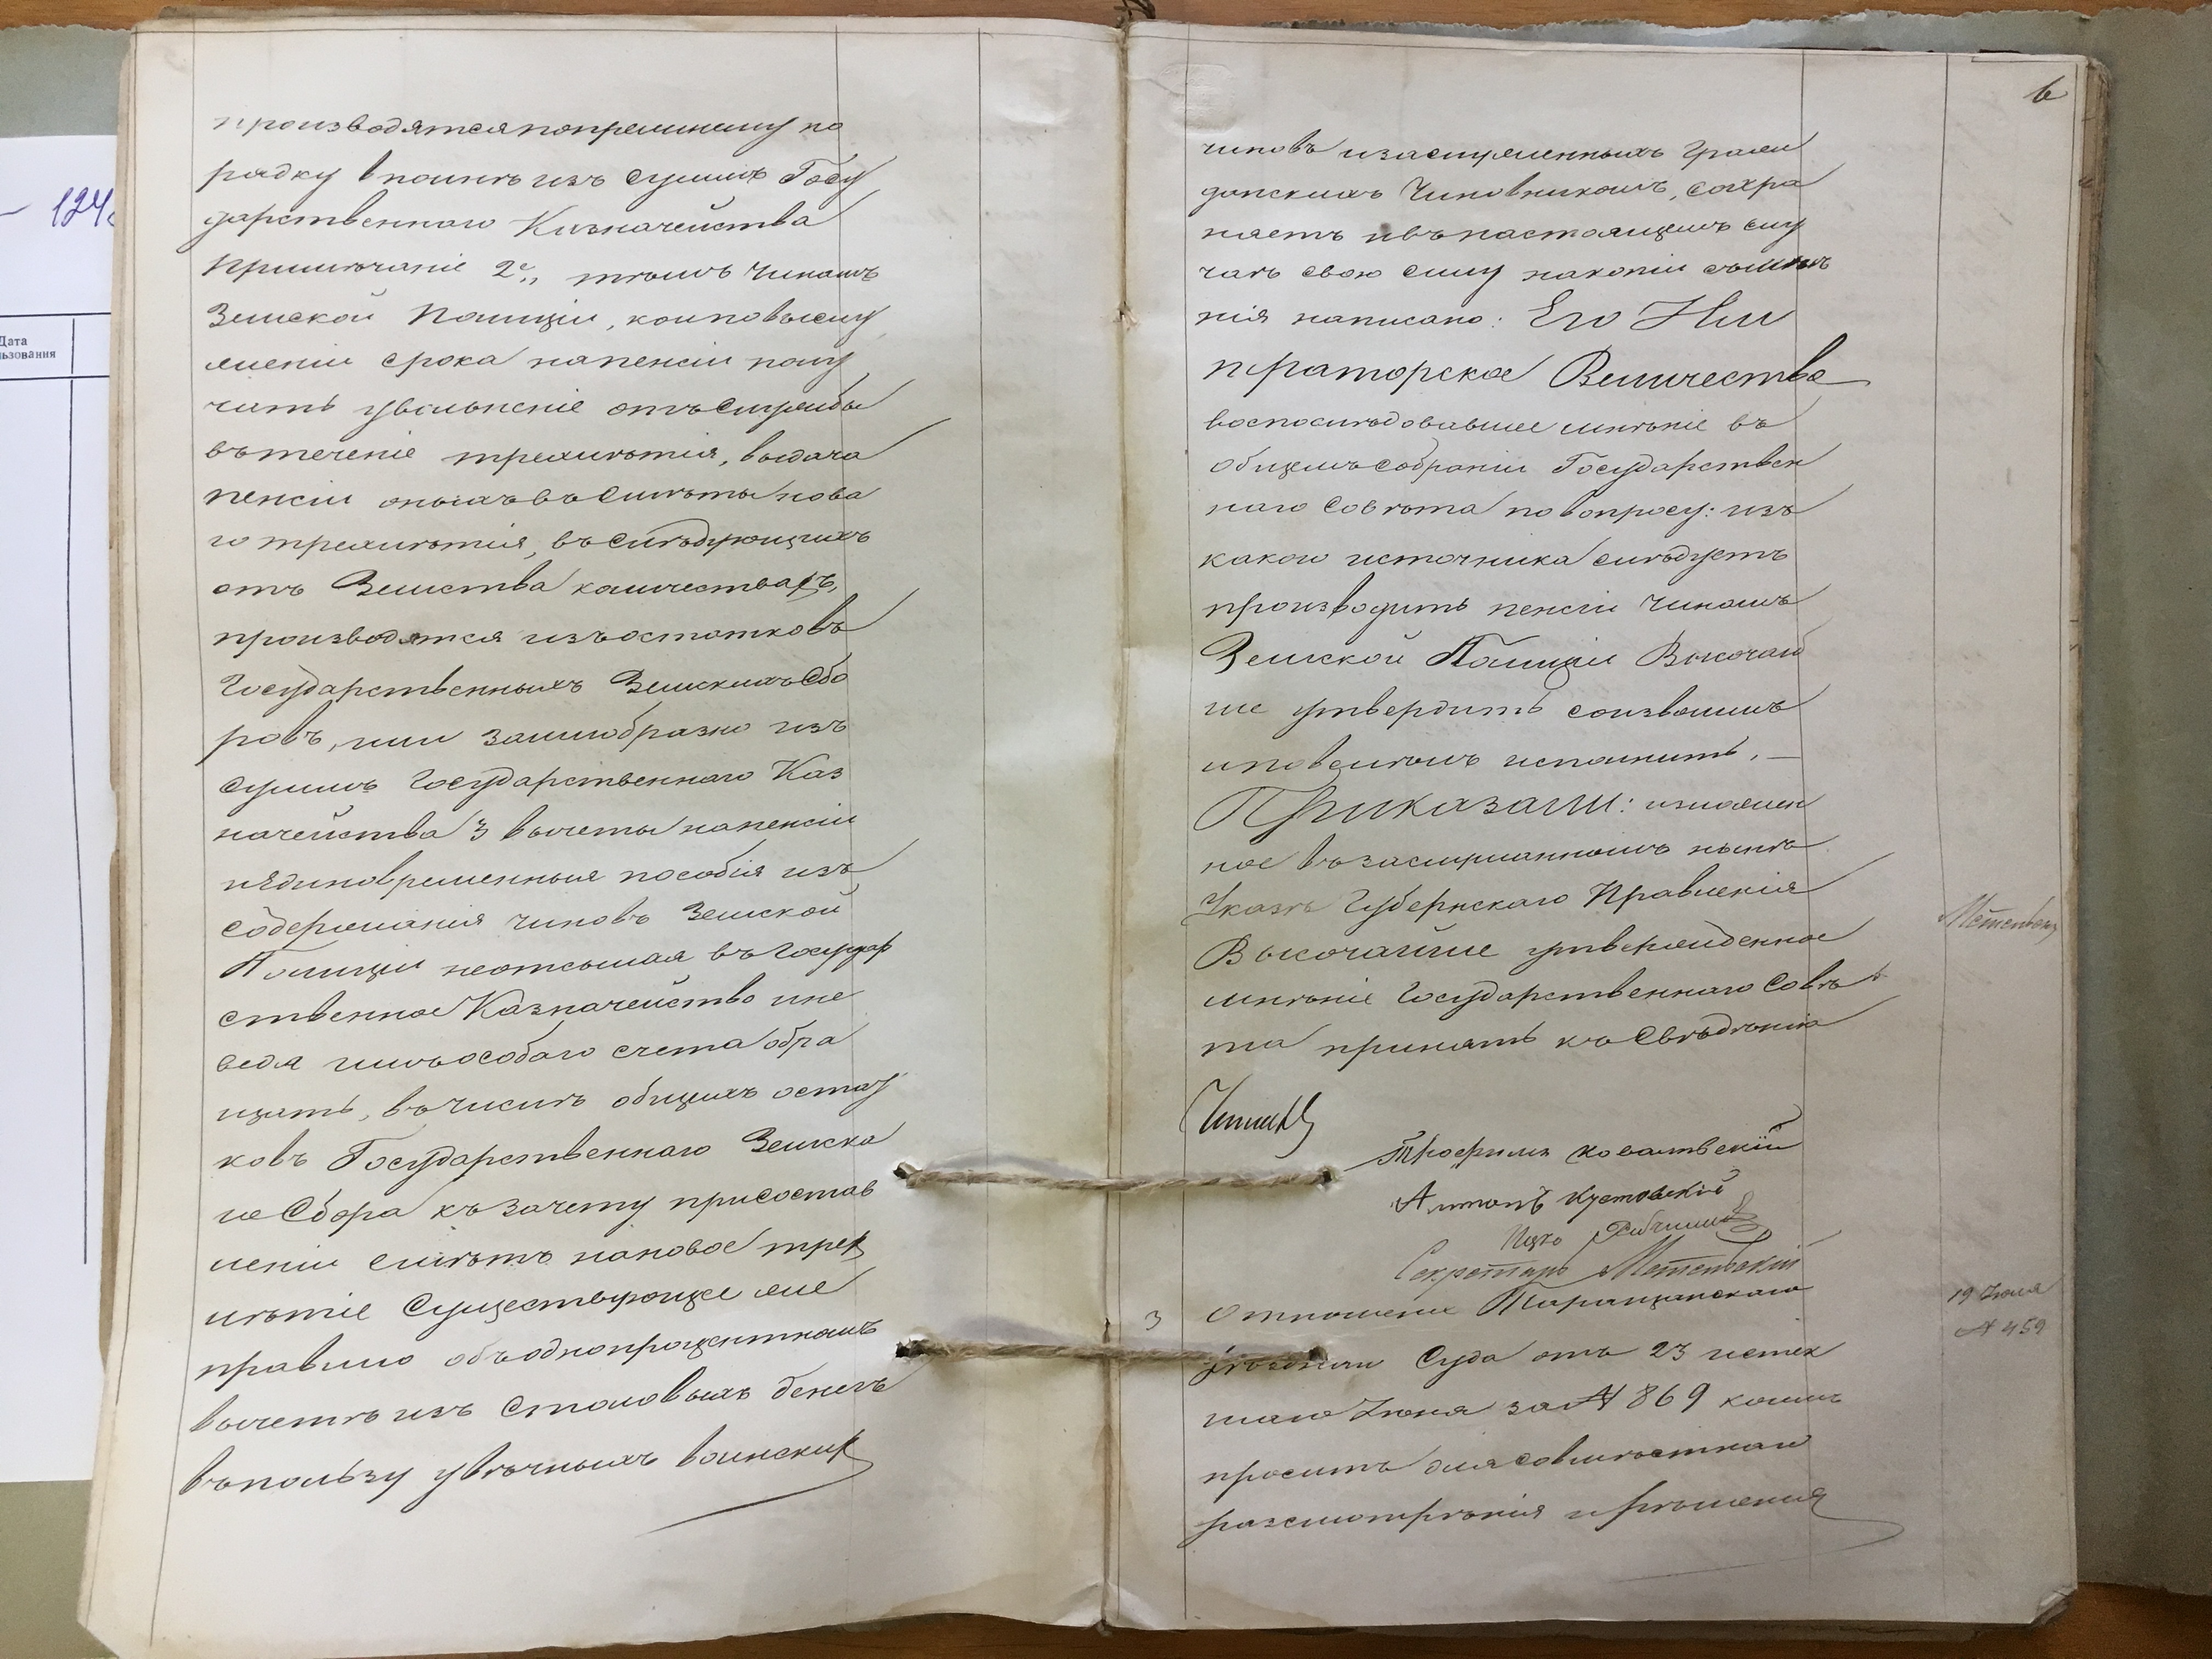 124
Дата
ьзования
производятся попрежнему по
рядку вполнѣ изъ суммъ Госу
дарственнаго Казначейства
Примѣчаніе 2е,, тѣмъ чинамъ
Земской Полиціи, кои по выслу
женіи срока на пенсіи полу
чатъ увольненіе отъ службы
въ теченіе трехлѣтія, выдача
пенсіи оныхъ въ смѣты нова
го трехлѣтія, въ слѣдующихъ
отъ Земства количествахъ,
производятся изъ остатковъ
Государственныхъ Земскихъ Сбо
ровъ, или заимобразно изъ
суммъ Государственнаго Каз
начейства 3 вычеты на пенсіи
и единовременныя пособія изъ
содержанія чиновъ Земской
Полиціи неотсылая въ Государ
ственное Казначейство и не
ведя имъ особаго счета обра
щать, въ числѣ общихъ остат
ковъ Государственнаго Земска
го Сбора къ зачету при состав
леніи смѣтъ на новое трех
лѣтіе Существующее же
правило объ однопроцентномъ
вычетѣ изъ столовыхъ денегъ
въ пользу увѣчныхъ воинских
6
чиновъ и заслуженныхъ граж
данскихъ Чиновникомъ, сохра
няетъ и въ настоящемъ слу
чаѣ свою силу на копіи съ мнѣ
нія написано: Его Им
ператорское Величество
воспослѣдовавшее мнѣніе въ
общемъ собраніи Государствен
наго Совѣта по вопросу: изъ
какого источника слѣдуетъ
производить пенсіи чинамъ
Земской Полиціи Высочай
ше утвердить соизволилъ
и повелѣлъ исполнить. —
Приказали: изложен
ное въ заслушанномъ нынѣ
Указѣ Губернскаго Правленія
Высочайше утвержденное
мнѣніе Государственнаго Совѣ
та принять къ свѣдѣнію
Трофимъ Ковальвскій
Антонъ Кустовскій
Секретарь Метельскій
3 Отношеніе Таращанскаго
Уѣзднаго Суда отъ 23 истек
шаго Іюня за № 869 коимъ
проситъ для совмѣстнаго
разсмотрѣнія и рѣшенія
19 Іюля
№ 459